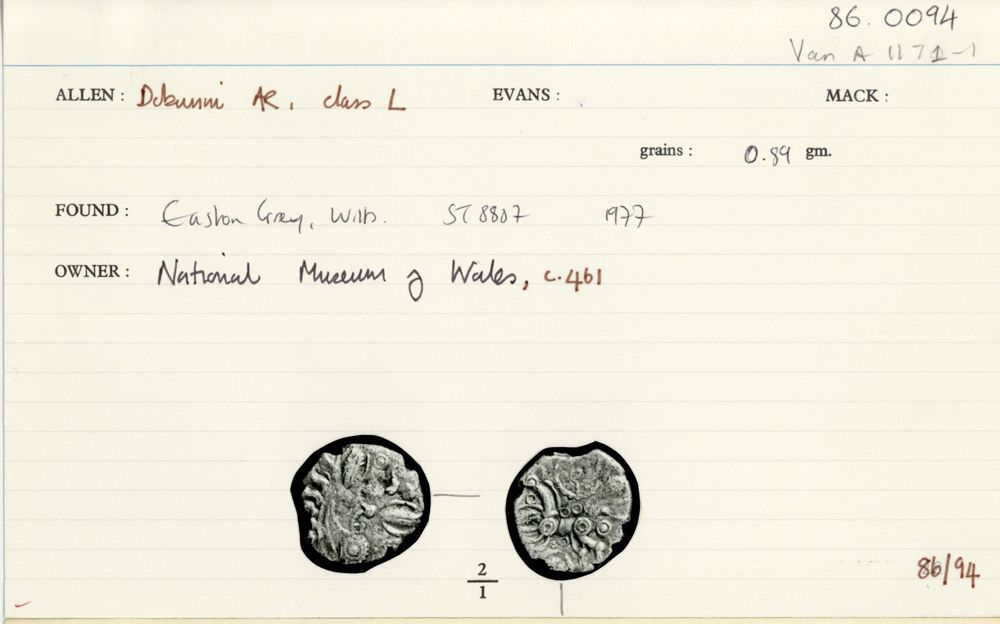 86.0094
Van A 1171-1
ALLEN : Dobunni AR, class L EVANS : MACK :
grains : 0.89 gm.
FOUND : Easton Grey, Wilts. ST 8807 1977
OWNER : National Museum of Wales, c.461
2
1
86/94